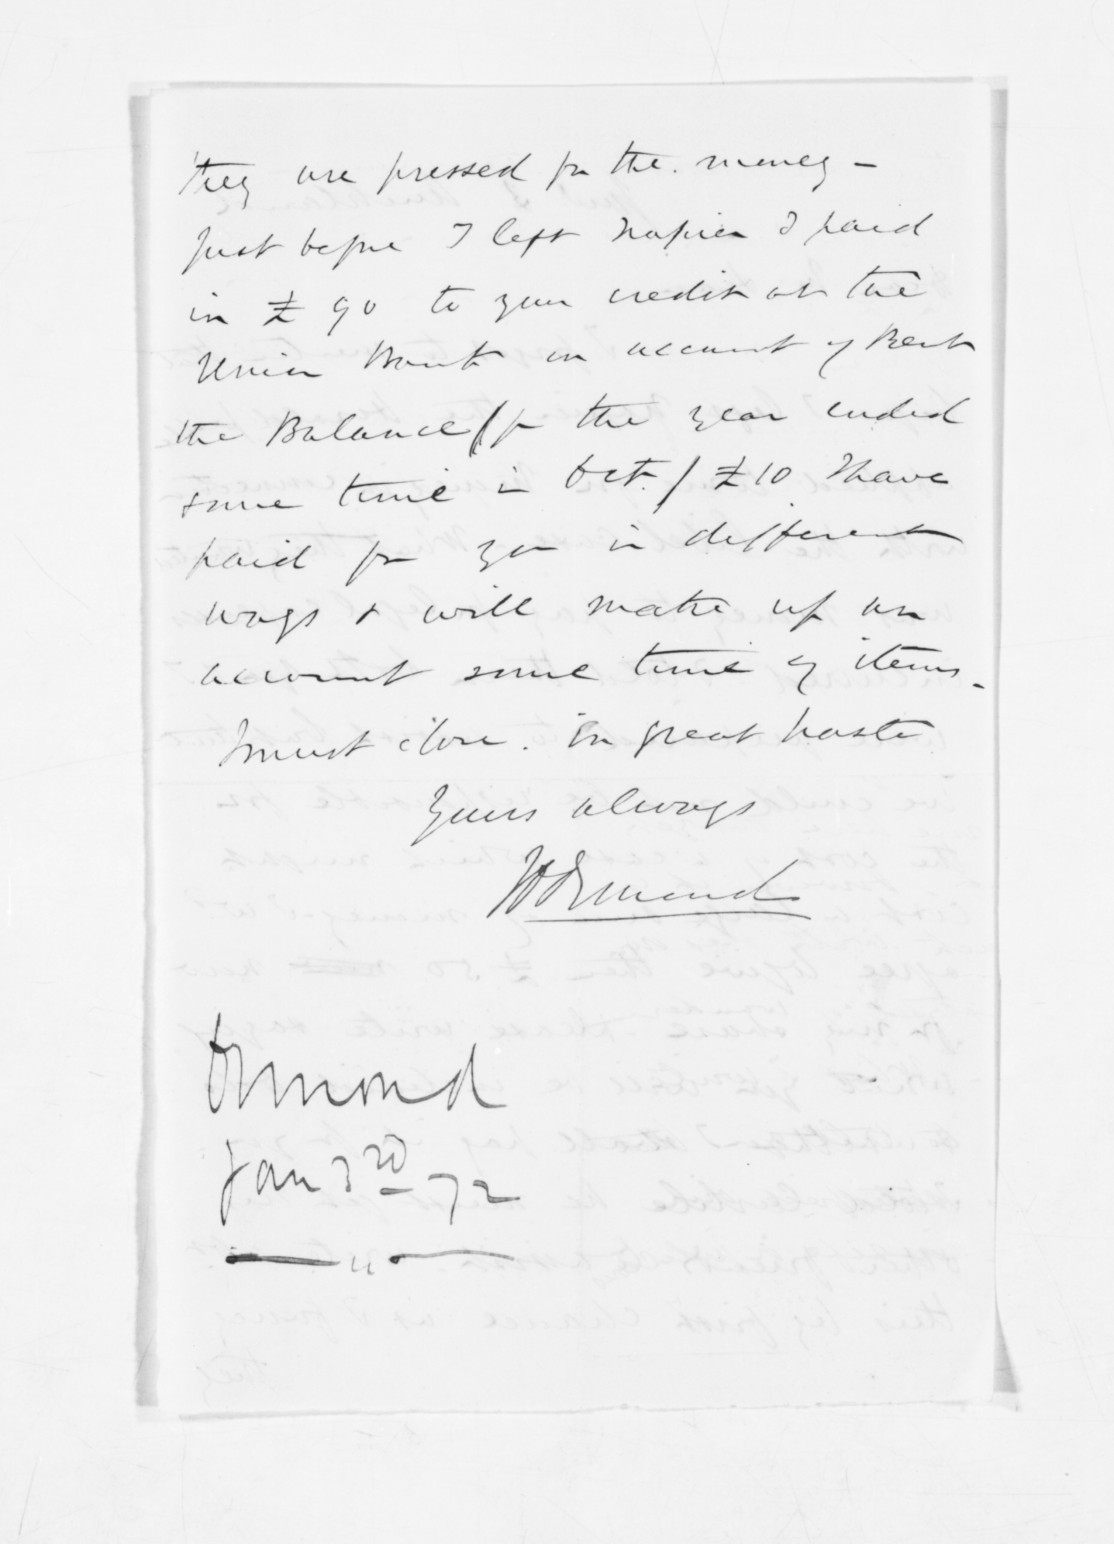 they are pressed for the money -
Just before I left Napier I paid
in £90 to your credit at the
Union Bank on account of Rent
the Balance (for the year ended
some time in Oct.) £10 I have
paid for you in different
ways & will make up an
account some time of items.
I must close. In great haste
Yours always
JD Ormond
Ormond
Jan 3rd 72